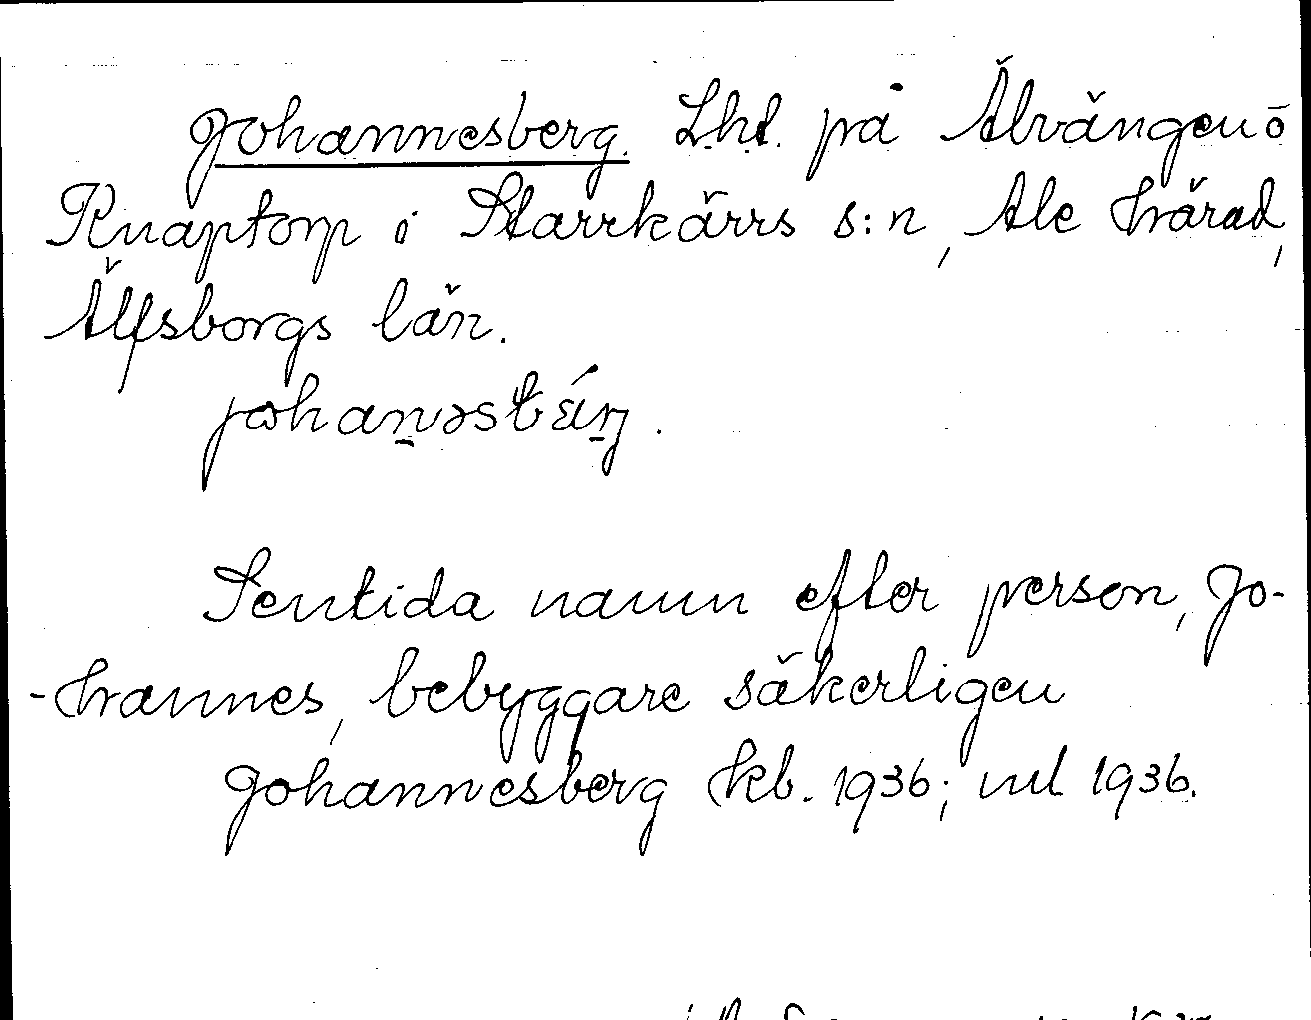 Johannesberg. Lht. på Älvängen o
Knaptorp i Starrkärrs s:n, Ale härad,
Älfsborgs län.
johanəsbärj.
Sentida namn efter person, Jo-
-hannes, bebyggare säkerligen
Johannesberg kb. 1936; ml 1936.